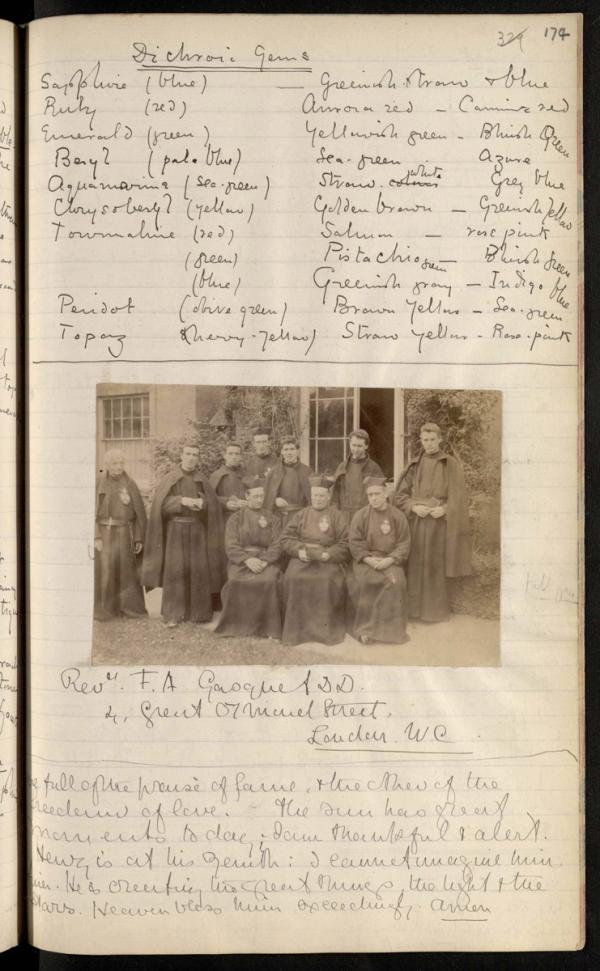 329 174
Dichroic Gems
Sapphire (blue) — Greenish straw & blue
Ruby (red) Aurora red — Carmine red
Emerald (green) Yellowish green - Bluish Green
Beryl (pale blue) Sea-green Azure
Aquamarine (sea-green) Straw white Grey blue
Chrysoberyl (yellow) Golden brown — Greenish Yellow
Tourmaline (red) Salmon — rose pink
(green) Pistachio green — Bluish green
(blue) Greenish gray — Indigo blue
Peridot (olive green) Brown Yellow — Sea-green
Topaz (sherry-Yellow) Straw Yellow - Rose-pink
Revd. F. A. Gasquet DD.
4, Great Ormond Street,
London. W.C.
full of the praise of fame, & the other of the
freedom of love. The sun has great
moments to day; I am thankful & alert.
Henry is at his Zenith: I cannot imagine him
He is creating the great things, the light & the
stars. Heaven bless him exceedingly. Amen